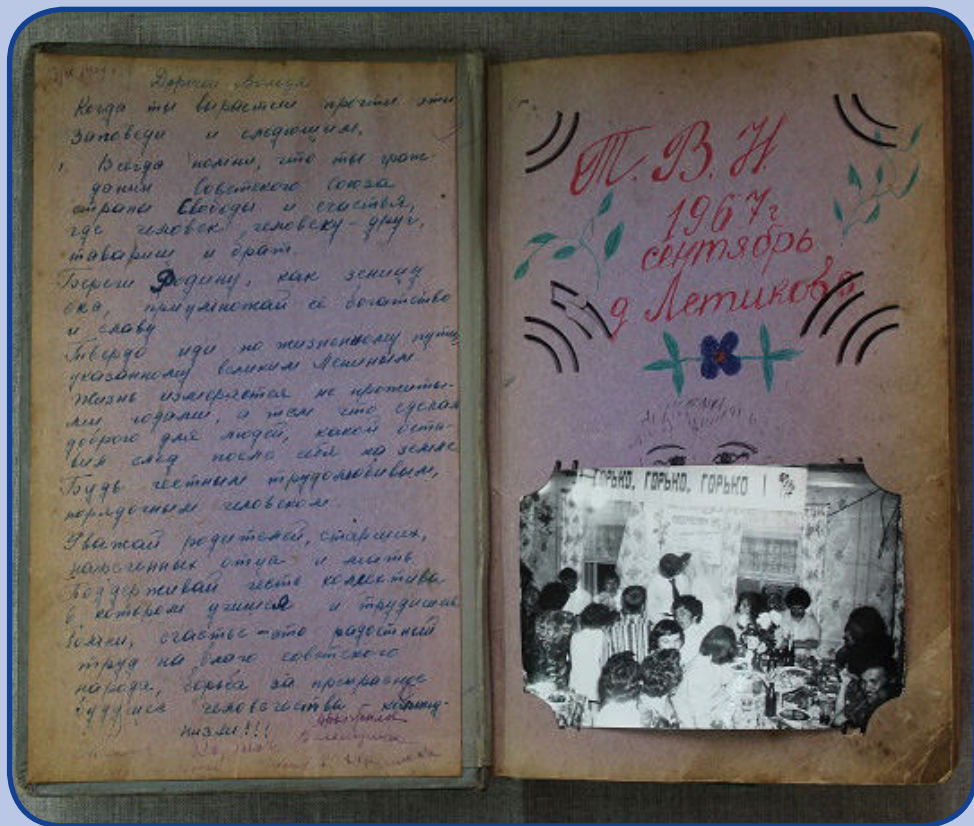 Дорогой Володя
Когда ты вырастиш прочти эти
заповеди и следющим.
1. Всегда помни, что ты граж-
данин Советского Союза
страны Свободы и счастья,
где человек человеку - друг,
товарищ и брат.
Береги Родину, как зеницу
ока, приумножай её богатство
и славу
Твёрдо иди по жизненному пути
указанному великим Лениным
Жизнь измеряется не прожиты-
ми годами, а тем что сделал
доброго для людей, какой оста-
вил след после себя на земле
Будь честным трудолюбивым,
порядочным человеком.
Уважай родителей, старших,
отца и мать.
Поддерживай честь коллектива
в котором учишся и трудишься
Помни, счастье - это радостный
труд на благо советского
народа, борьба за прекрасное
будущее человечества комму-
низм!!!
Т. В. Н.
1967г
сентябрь
д Летиково
ГОРЬКО, ГОРЬКО, ГОРЬКО !